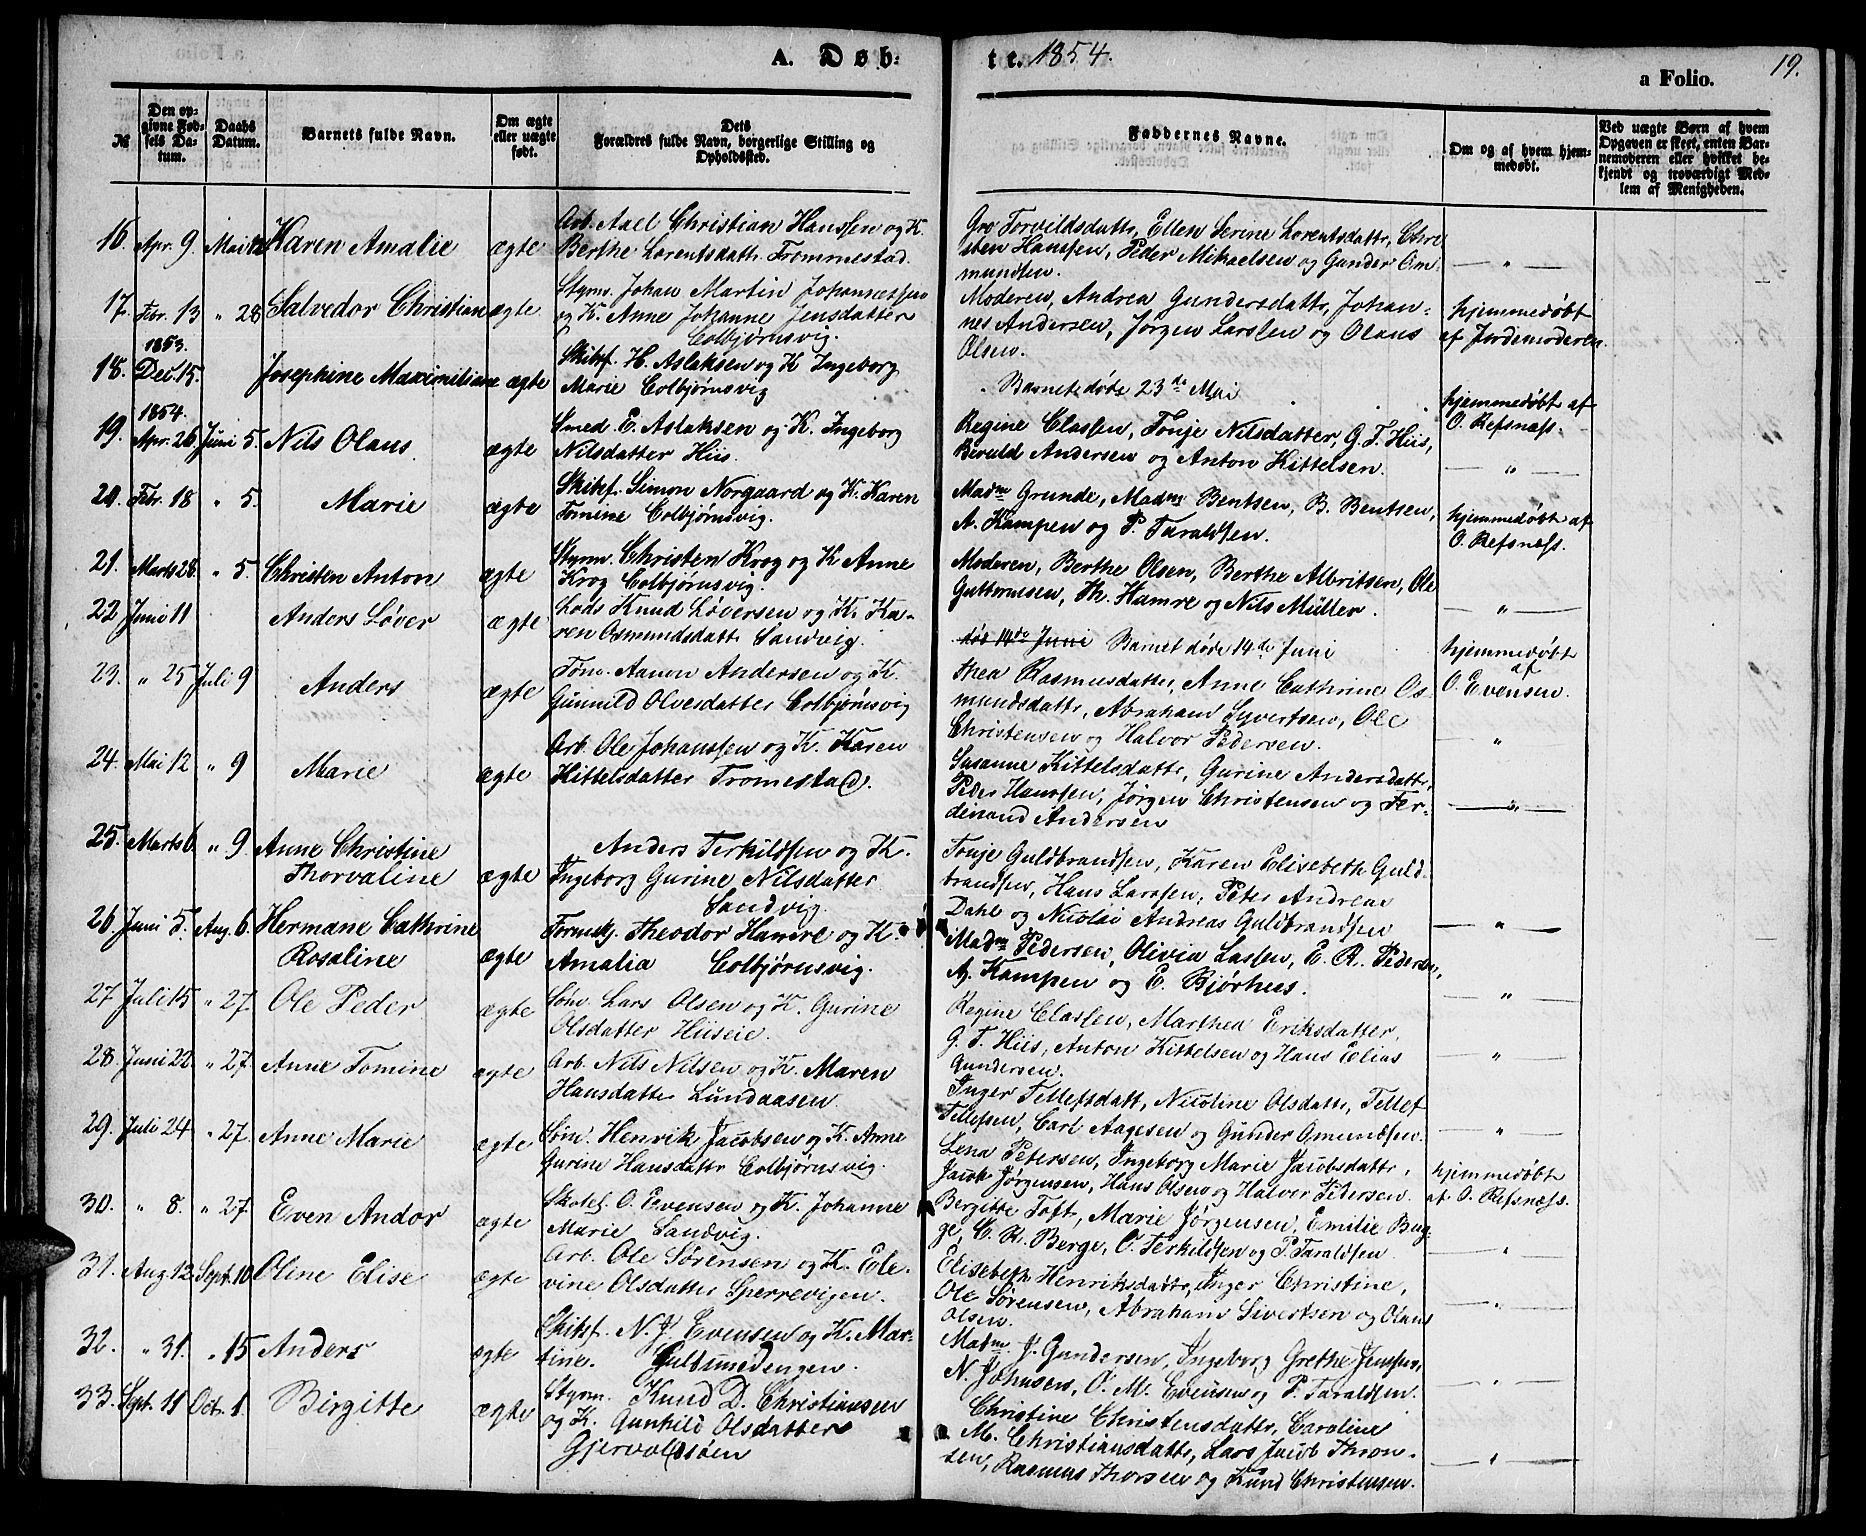 A. Døb-
te. 1854.
19.
a Folio.
№
Den opgivne Fødsels Datum.
Daabs Datum.
Barnets fulde Navn.
Om ægte eller uægte født.
Dets Forældres fulde Navn, borgerlige Stilling og Opholdssted.
Faddernes Navne.
Om og af hvem hjemmedøbt.
Ved uægte Børn af hvem Opgaven er skeet, enten Barnemoderen eller hvilket bekjendt og troværdigt Medlem af Menigheden.
16. Apr. 9 Mai Karen Amalie ægte
Arb. Axel Christian Hanssen og K.
Berthe Lorentsdattr. Trommestad.
Gro Torvildsdattr, Ellen Serine Lorentsdattr, Chri
sten Hanssen, Peder Mikaelsen og Gunder Om-
mundsen.
— " —
17. Febr. 13 " 28 Salvedor Christian ægte
Styrm. Johan Martin Johannessen
og K. Anne Johanne Jensdatter
Colbjørnsvig.
Moderen, Andrea Gundersdattr, Johan-
nes Andersen, Jørgen Larssen og Olaus
Olsen.
hjemmedøbt
af Jordemoderen.
1853.
18. Dec. 15. Josephine Maximiliane ægte
Skibsf. H. Aslaksen og K Ingeborg
Marie Colbjørnsvig
Barnet døde 23de Mai
hjemmedøbt af
O. Refsnæss.
1854.
19. Apr. 26 Juni 5. Nils Olaus. ægte
Smed E. Aslaksen og K. Ingeborg
Nilsdatter Hiis.
Regine Classen, Tonje Nilsdatter, G. T. Hiis,
Beruld Andersen og Anton Kittelsen.
— " —
20. Febr. 18 " 5. Marie ægte
Skibsf. Simon Norgaard og K. Karen
Tomine Colbjørnsvig.
Madm Grunde, Madm Bentsen, B. Bentsen,
A. Kampen og P. Taraldsen.
hjemmedøbt af
O. Refsnæss.
21. Marts 28. " 5. Christen Anton ægte
Styrm. Christen Krog og K Anne
Krog Colbjørnsvig.
Moderen, Berthe Olsen, Berthe Albritsen, Ole
Guttormsen, Th. Hamre og Nils Müller.
— " —
22 Juni 11 Anders Løver ægte
Lods Knud Løversen og K. Ka-
ren Osmundsdattr Sandvig.
død 14de Juni Barnet døde 14de Juni
hjemmedøbt
af
O. Evensen.
23. " 25 Juli 9 Anders ægte
Tøm. Aanon Andersen og K.
Gunnild Olvesdatter Colbjørnsvig
Thea Rasmusdatter, Anne Cathrine Os
mundsdattr, Abraham Syvertsen, Ole
Christensen og Halvor Pedersen.
"
24. Mai 12 " 9 Marie ægte
Arb. Ole Johanssen og K. Karen
Kittelsdatter Tromestad.
Susanne Kittelsdattr, Gurine Andersdattr,
Peder Hanssen, Jørgen Christensen og Fer-
dinand Andersen
— " —
25. Marts 6. " 9 Anne Christine
Thorvaline ægte
Anders Terkildsen og K.
Ingeborg Gurine Nilsdatter
Sandvig.
Tonje Guldbrandsen, Karen Elisebeth Guld-
brandsen, Hans Larssen, Peter Andreas
Dahl og Nicolai Andreas Guldbrandsen
— " —
26. Juni 5. Aug. 6. Hermane Cathrine
Rosaline ægte
Theodor Hamre og K.
Amalia Colbjørnsvig.
Madm Pedersen, Olivia Lassen, E. R. Pedersen,
A. Kampen og E. Bjørhus.
— " —
27 Juli 15 " 27. Ole Peder ægte
Søm. Lars Olsen og K. Gurine
Olsdatter Huseie.
Regine Classen, Marthea Eriksdatter,
G. T. Hiis, Anton Kittelsen og Hans Elias
Gundersen.
— " —
28. Juni 22. " 27. Anne Tomine ægte
Arb. Nils Nilsen og K. Maren
Hansdattr Lundaasen.
Inger Tellefsdatt, Nicoline Olsdattr, Tellef
Tellefsen, Carl Aagesen og Gunder Omundsen.
— " —
29. Juli 24 " 27. Anne Marie ægte
Søm. Henrik Jacobsen og K. Anne
Gurine Hansdattr Colbjørnsvig.
Lena Petersen, Ingeborg Marie Jacobsdattr,
Jacob Jørgensen, Hans Olsen og Halvor Petersen.
hjemmedøbt
af O. Refsnæss.
30. " 8. " 27. Even Andor ægte
O. Evensen og K. Johanne
Marie Sandvig.
Bergitte Toft, Marie Jørgensen, Emilie Bug-
ge, C. R. Berge, O. Terkildsen og P. Taraldsen
"
31. Aug. 12. Sept. 10 Oline Elise ægte
Arb. Ole Sørensen og K. Ele-
vine Olsdatter Sperrevigen.
Elisebeth Henriksdattr, Inger Christine,
Ole Sørensen, Abraham Sivertsen og Olaus
Olsen.
— " —
32. " 31. " 15 Anders ægte
Skibsf. N. J. Evensen og K. Mar-
tine. Guldsmedengen.
Madm. J. Gundersen, Ingeborg Grethe Jenssen,
N. Johnsen, O. M. Evensen og P. Taraldsen.
— " —
33. Sept. 11 Oct. 1. Birgitte ægte
Styrm. Knud D. Christiansen
og K. Gunhild Olsdatter
Gjervoldsøen
Christine Christensdattr, Caroline
M. Christiansdattr, Lars Jacob Thron-
sen, Rasmus Thorsen og Knud Christensen.
— " —